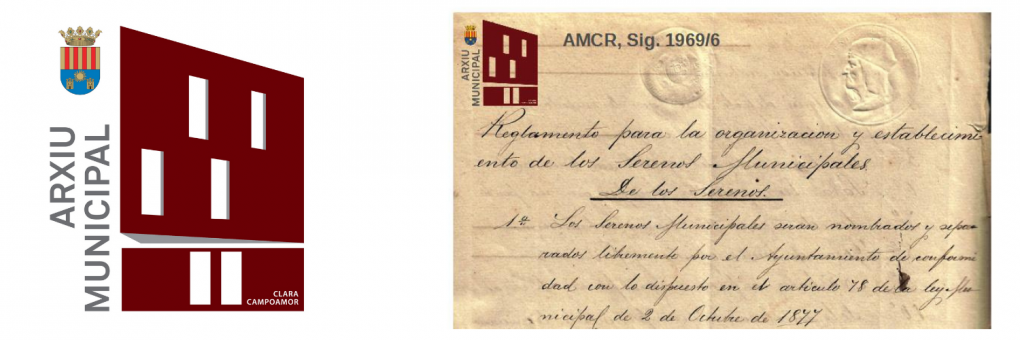 ARXIU
MUNICIPAL
CLARA
CAMPOAMOR
ARXIU
MUNICIPAL
AMCR, Sig. 1969/6
Reglamento para la organizacion y establecimi
ento de los Serenos Municipales.
De los Serenos.
1º Los Serenos Municipales seran nombrados y sepa-
rados libremente por el Ayuntamiento de conformi
dad con lo dispuesto en el articulo 78 de la ley Mu-
nicipal de 2 de Octubre de 1877